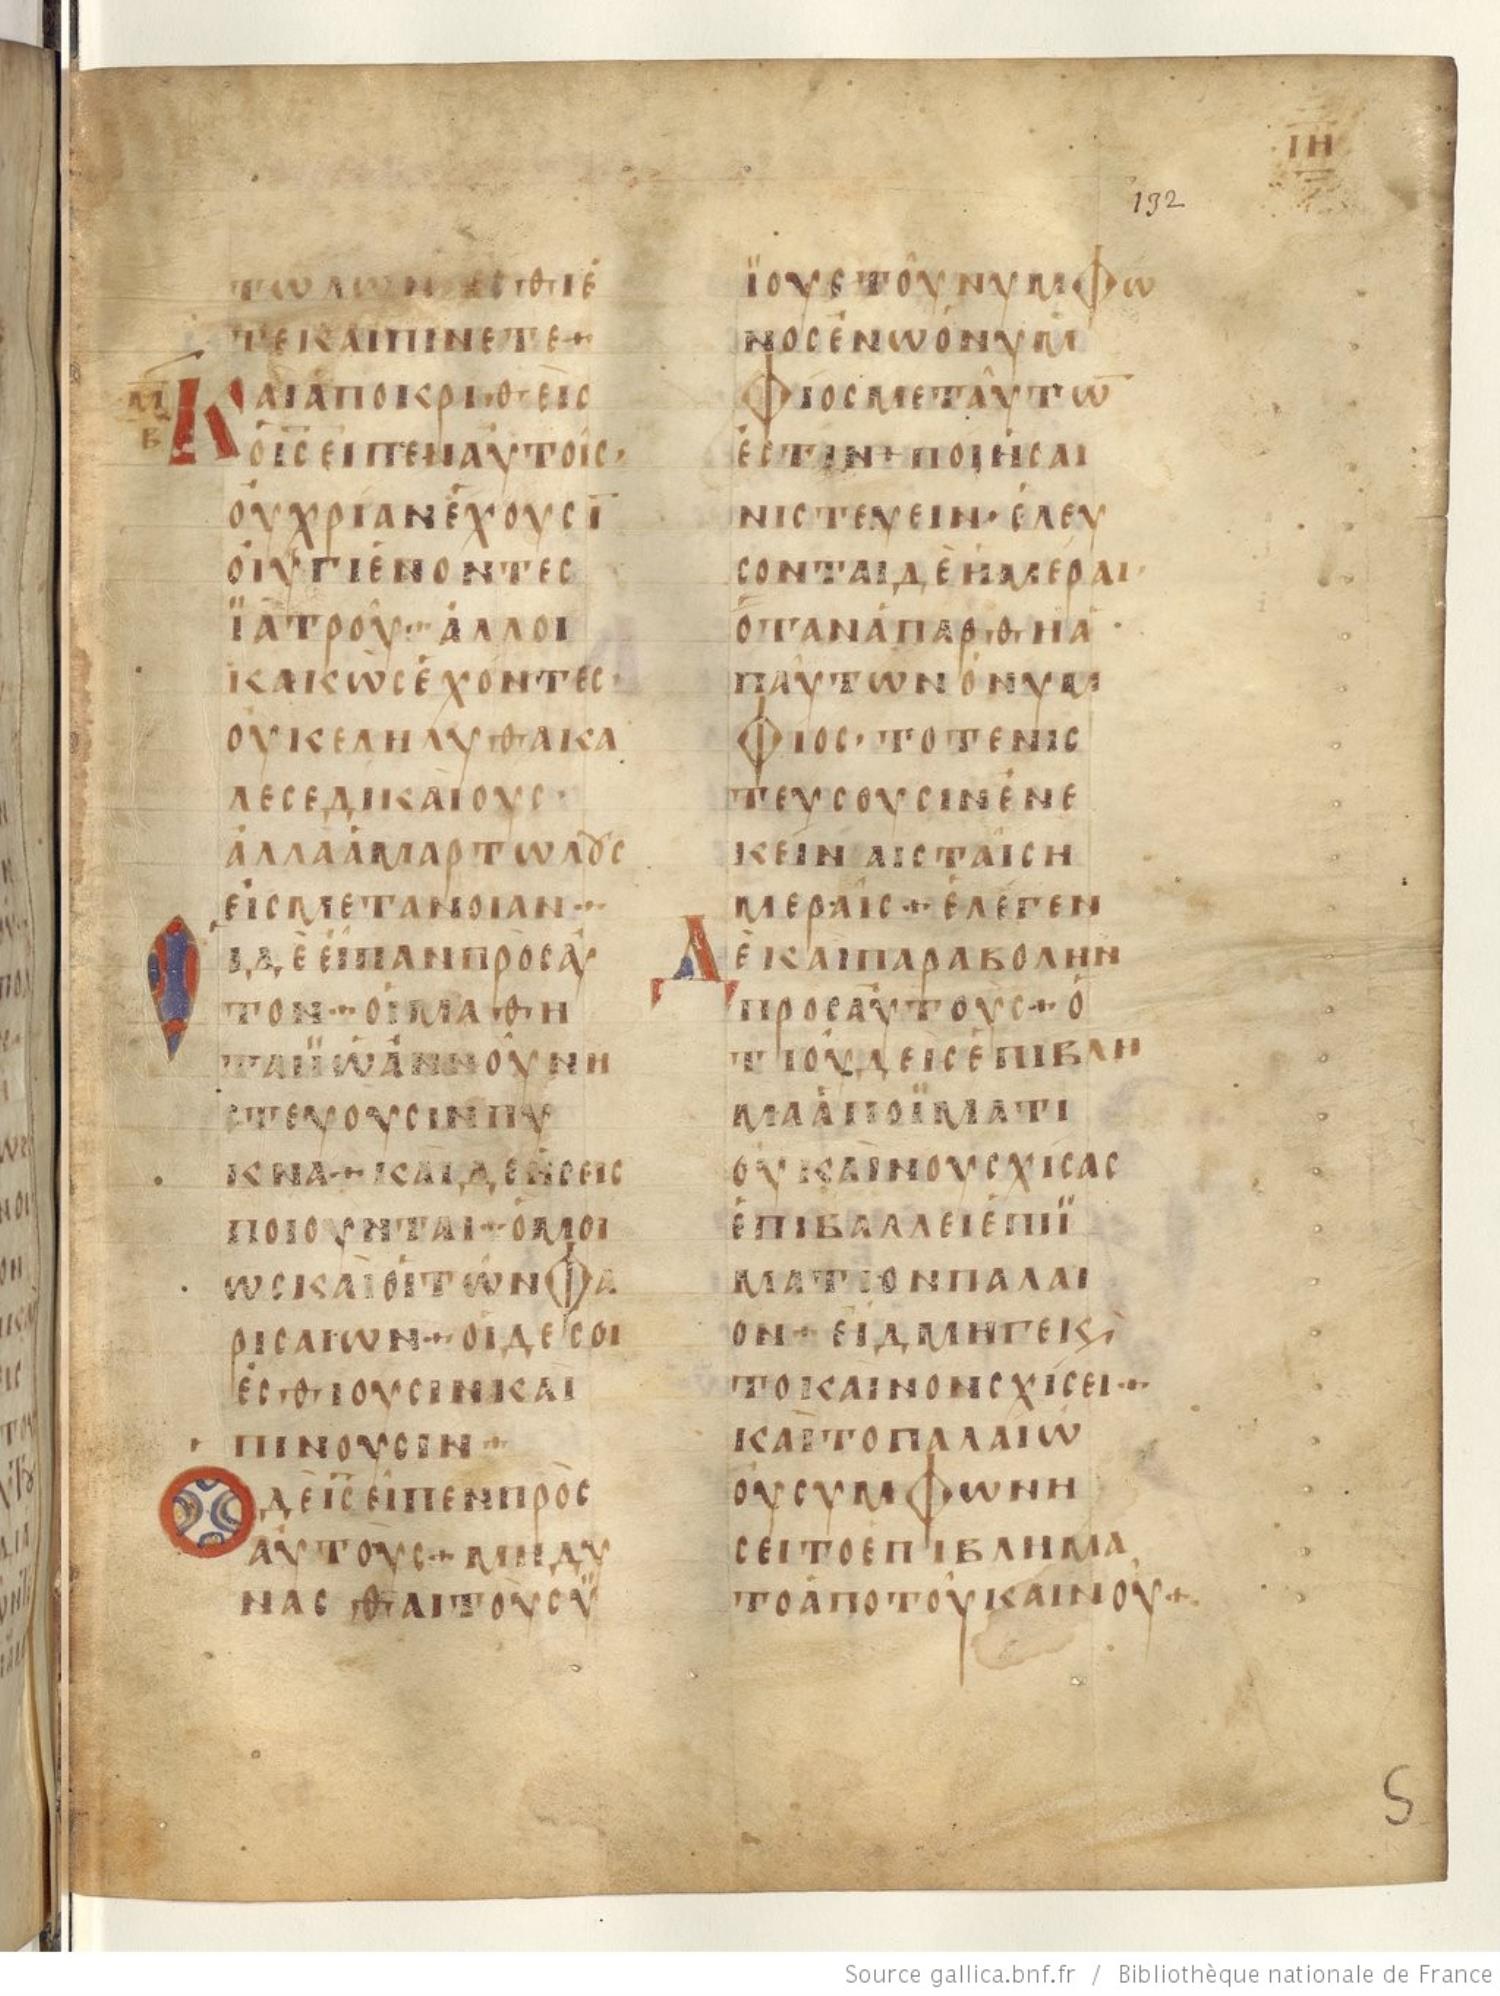 ΙΗ
132
ΤωΛωΝ ΕΣΘΙΕ
ΤΕΚΑΙΠΙΝΕΤΕ+
ΜΒ
Β
ΚΑΙΑΠΟΚΡΙΘΕΙC
ΟΙCΕΙΠΕΝΑΥΤΟΙC·
ΟΥΧΡΙΑΝΕΧΟΥCΙ̅
ΟΙΥΓΙΕΝΟΝΤΕC
ΪΑΤΡΟΥ·ΑΛΛΟΙ
ΚΑΚωCΕΧΟΝΤΕC·
ΟΥΚΕΛΗΛΥΘΑΚΑ
ΛΕCΕΔΙΚΑΙΟΥC·
ΑΛΛΑΑΜΑΡΤωΛȣC
ΕΙCΜΕΤΑΝΟΙΑΝ+
ΟΙΔΕΕΙΠΑΝΠΡΟCΑΥ
ΤΟΝ+ΟΙΜΑΘΗ
ΤΑΙΪωΑΝΝΟΥΝΗ
CΤΕΥΟΥCΙΝΠΥ
ΚΝΑ+ΚΑΙΔΕΗCΕΙC
ΠΟΙΟΥΝΤΑΙ+ΟΜΟΙ
ωCΚΑΙΟΙΤωΝΦΑ
ΡΙCΑΙωΝ+ΟΙΔΕCΟΙ
ΕCΘΙΟΥCΙΝΚΑΙ
ΠΙΝΟΥCΙΝ+
ΟΔΕΙ̅C̅ΕΙΠΕΝΠΡΟC
ΑΥΤΟΥC+ΜΗΔΥ
ΝΑCΘΑΙΤΟΥCΫ
ΪΟΥCΤΟΥΝΥΜΦω
ΝΟCΕΝωΟΝΥΜ
ΦΙΟCΜΕΤΑΥΤω̅
ΕCΤΙΝ+ΠΟΙΗCΑΙ
ΝΙCΤΕΥΕΙΝ·ΕΛΕΥ
CΟΝΤΑΙΔΕΗΜΕΡΑΙ·
ΟΤΑΝΑΠΑΡΘΗΑ·
ΠΑΥΤωΝΟΝΥΜ
ΦΙΟC·ΤΟΤΕΝΙC
ΤΕΥCΟΥCΙΝΕΝΕ
ΚΕΙΝΑΙCΤΑΙCΗ
ΜΕΡΑΙC+ΕΛΕΓΕΝ
ΔΕΚΑΙΠΑΡΑΒΟΛΗΝ
ΠΡΟCΑΥΤΟΥC+Ο
ΤΙΟΥΔΕΙCΕΠΙΒΛΗ
ΜΑΑΠΟΪΜΑΤΙ
ΟΥΚΑΙΝΟΥCΧΙCΑC
ΕΠΙΒΑΛΛΕΙΕΠΙΪ
ΜΑΤΙΟΝΠΑΛΑΙ
ΟΝ+ΕΙΔΜΗΓΕΚϚ
ΤΟΚΑΙΝΟΝCΧΙCΕΙ+
ΚΑΙΤΟΠΑΛΑΙω
ΟΥCΥΜΦωΝΗ
CΕΙΤΟΕΠΙΒΛΗΜΑ
ΤΟΑΠΟΤΟΥΚΑΙΝΟΥ+
S
Source gallica.bnf.fr / Bibliothèque nationale de France